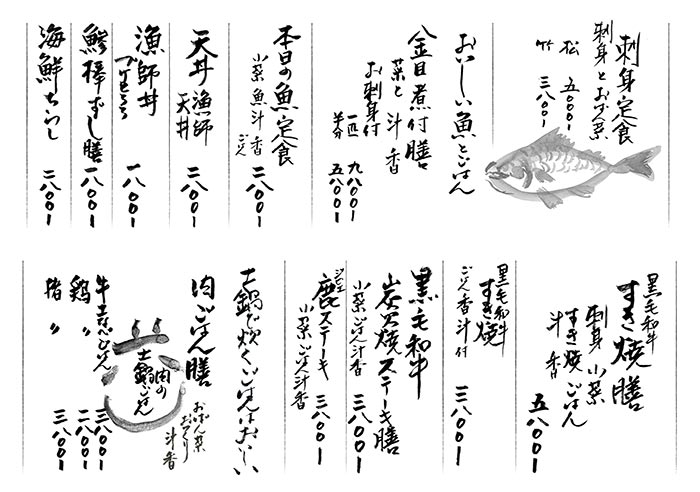 刺身定食
刺身とおばん菜
松 五〇〇〇ー
竹 三八〇〇ー
おいしい魚とごはん
金目煮付膳
菜と汁香
お刺身付
一匹 九八〇〇ー
半分 五八〇〇ー
本日の魚定食
小菜魚汁香ごはん
二八〇〇ー
天丼
漁師天丼
二八〇〇ー
漁師丼
一八〇〇ー
鯵棒ずし膳
一八〇〇ー
海鮮ちらし
二八〇〇ー
黒毛和牛
すき焼膳
刺身小菜
すき焼ごはん
汁香
五八〇〇ー
黒毛和牛
すき焼
ごはん香汁付
三八〇〇ー
黒毛和牛
炭火焼ステーキ膳
小菜ごはん汁香
三八〇〇ー
ジビエ
鹿ステーキ
小菜ごはん汁香
三八〇〇ー
土鍋で炊くごはんはおいしい
肉ごはん膳
おばん菜
おつくり
汁香
肉の
土鍋ごはん
牛土なべごはん 三八〇〇ー
鶏 〃 二八〇〇ー
猪 〃 三八〇〇ー